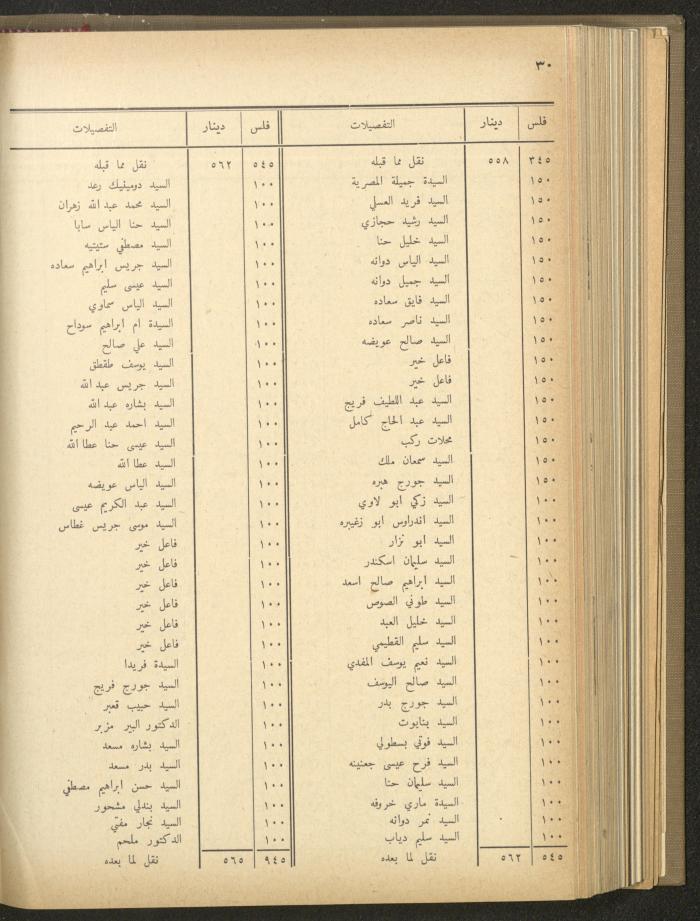 ٣٠
فلس دينار التفصيلات
٣٤٥ ٥٥٨ نقل مما قبله
١٥٠ السيدة جميلة المصرية
١٥٠ السيد فريد العسلي
١٥٠ السيد رشيد حجازي
١٥٠ السيد خليل حنا
١٥٠ السيد الياس دوانه
١٥٠ السيد جميل دوانه
١٥٠ السيد فايق سعاده
١٥٠ السيد ناصر سعاده
١٥٠ السيد صالح عويضه
١٥٠ فاعل خير
١٥٠ فاعل خير
١٥٠ السيد عبد اللطيف فريج
١٥٠ السيد عبد الحاج كامل
١٥٠ محلات ركب
١٥٠ السيد سمعان ملك
١٥٠ السيد جورج هبره
١٠٠ السيد زكي ابو لاوي
١٠٠ السيد اندراوس ابو زغيبره
١٠٠ السيد ابو نزار
١٠٠ السيد سليمان اسكندر
١٠٠ السيد ابراهيم صالح اسعد
١٠٠ السيد طوني الصوص
١٠٠ السيد خليل العبد
١٠٠ السيد سليم القطيمي
١٠٠ السيد نعيم يوسف المفدي
١٠٠ السيد صالح اليوسف
١٠٠ السيد جورج بدر
١٠٠ السيد بنايوت
١٠٠ السيد فوتي بسطولي
١٠٠ السيد فرح عيسى جعنينه
١٠٠ السيد سليمان حنا
١٠٠ السيدة ماري خروفه
١٠٠ السيد نمر دوانه
١٠٠ السيد سليم دياب
٥٤٥ ٥٦٢ نقل لما بعده
فلس دينار التفصيلات
٥٤٥ ٥٦٢ نقل مما قبله
١٠٠ السيد دومينيك رعد
١٠٠ السيد محمد عبد الله زهران
١٠٠ السيد حنا الياس سابا
١٠٠ السيد مصطفي ستيتيه
١٠٠ السيد جريس ابراهيم سعاده
١٠٠ السيد عيسى سليم
١٠٠ السيد الياس سماوي
١٠٠ السيدة ام ابراهيم سوداح
١٠٠ السيد علي صالح
١٠٠ السيد يوسف طقطق
١٠٠ السيد جريس عبد الله
١٠٠ السيد بشاره عبد الله
١٠٠ السيد احمد عبد الرحيم
١٠٠ السيد عيسى حنا عطا الله
١٠٠ السيد عطا الله
١٠٠ السيد الياس عويضه
١٠٠ السيد عبد الكريم عيسى
١٠٠ السيد موسى جريس غطاس
١٠٠ فاعل خير
١٠٠ فاعل خير
١٠٠ فاعل خير
١٠٠ فاعل خير
١٠٠ فاعل خير
١٠٠ فاعل خير
١٠٠ السيدة فريدا
١٠٠ السيد جورج فريج
١٠٠ السيد حبيب قعبر
١٠٠ الدكتور البير مزبر
١٠٠ السيد بشاره مسعد
١٠٠ السيد بدر مسعد
١٠٠ السيد حسن ابراهيم مصطفي
١٠٠ السيد بندلي مشحور
١٠٠ السيد نجار مفتي
١٠٠ الدكتور ملحم
٩٤٥ ٥٦٥ نقل لما بعده